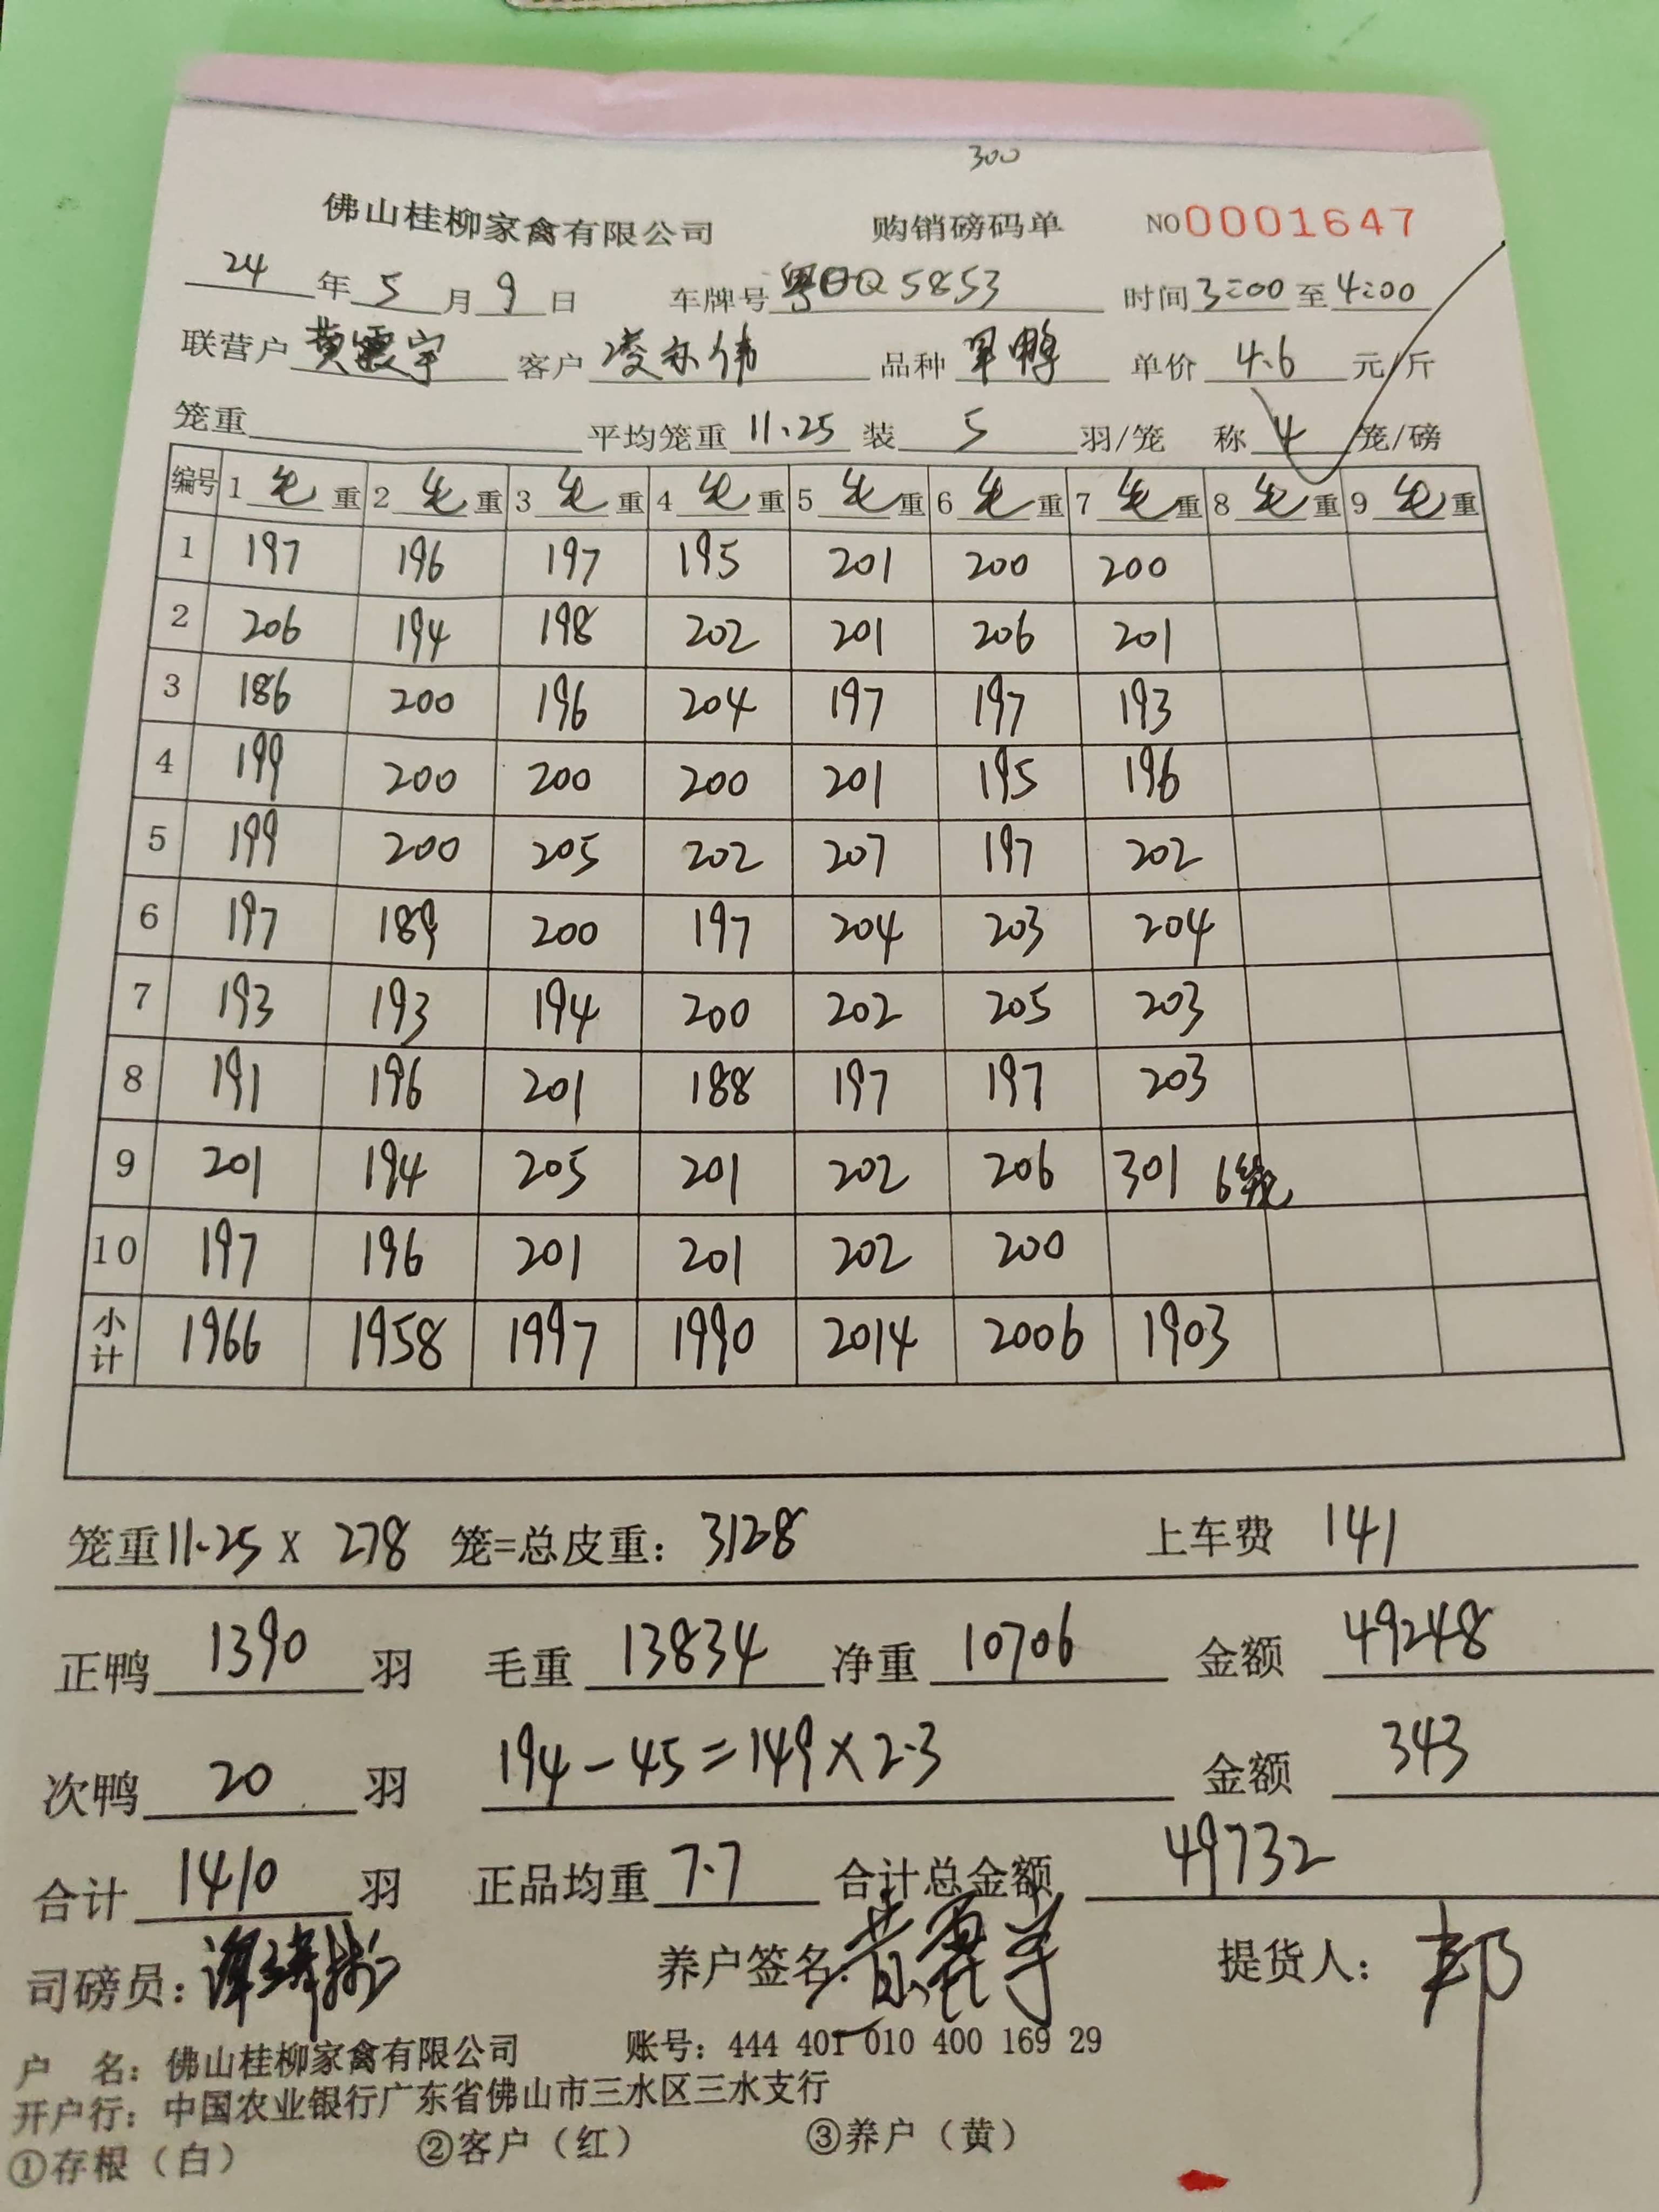 300
佛山桂柳家禽有限公司 购销磅码单 NO0001647
24年5月9日 车牌号 Q5853 时间3:00至4:00
联营户黄霞宇 客户凌 伟 品种 鸭 单价4.6元/斤
笼重 平均笼重11.25装5羽/笼 称4笼/磅
编号 1毛重 2毛重 3毛重 4毛重 5毛重 6毛重 7毛重 8毛重 9毛重
1 197 196 197 195 201 200 200
2 206 194 198 202 201 206 201
3 186 200 196 204 197 197 193
4 199 200 200 200 201 195 196
5 199 200 205 202 207 197 202
6 197 189 200 197 204 203 204
7 193 193 194 200 202 205 203
8 191 196 201 188 197 197 203
9 201 194 205 201 202 206 301 6笼
10 197 196 201 201 202 200
小计 1966 1958 1997 1990 2014 2006 1903
笼重11.25 X 278 笼=总皮重：3128 上车费 141
正鸭1390羽 毛重13834净重10706 金额49248
次鸭20羽 194-45=149×2.3 金额343
合计1410羽 正品均重7.7合计总金额49732
司磅员： 养户签名：黄霞宇 提货人：邦
户 名：佛山桂柳家禽有限公司 账号：444 401 010 400 169 29
开户行：中国农业银行广东省佛山市三水区三水支行
①存根（白） ②客户（红） ③养户（黄）